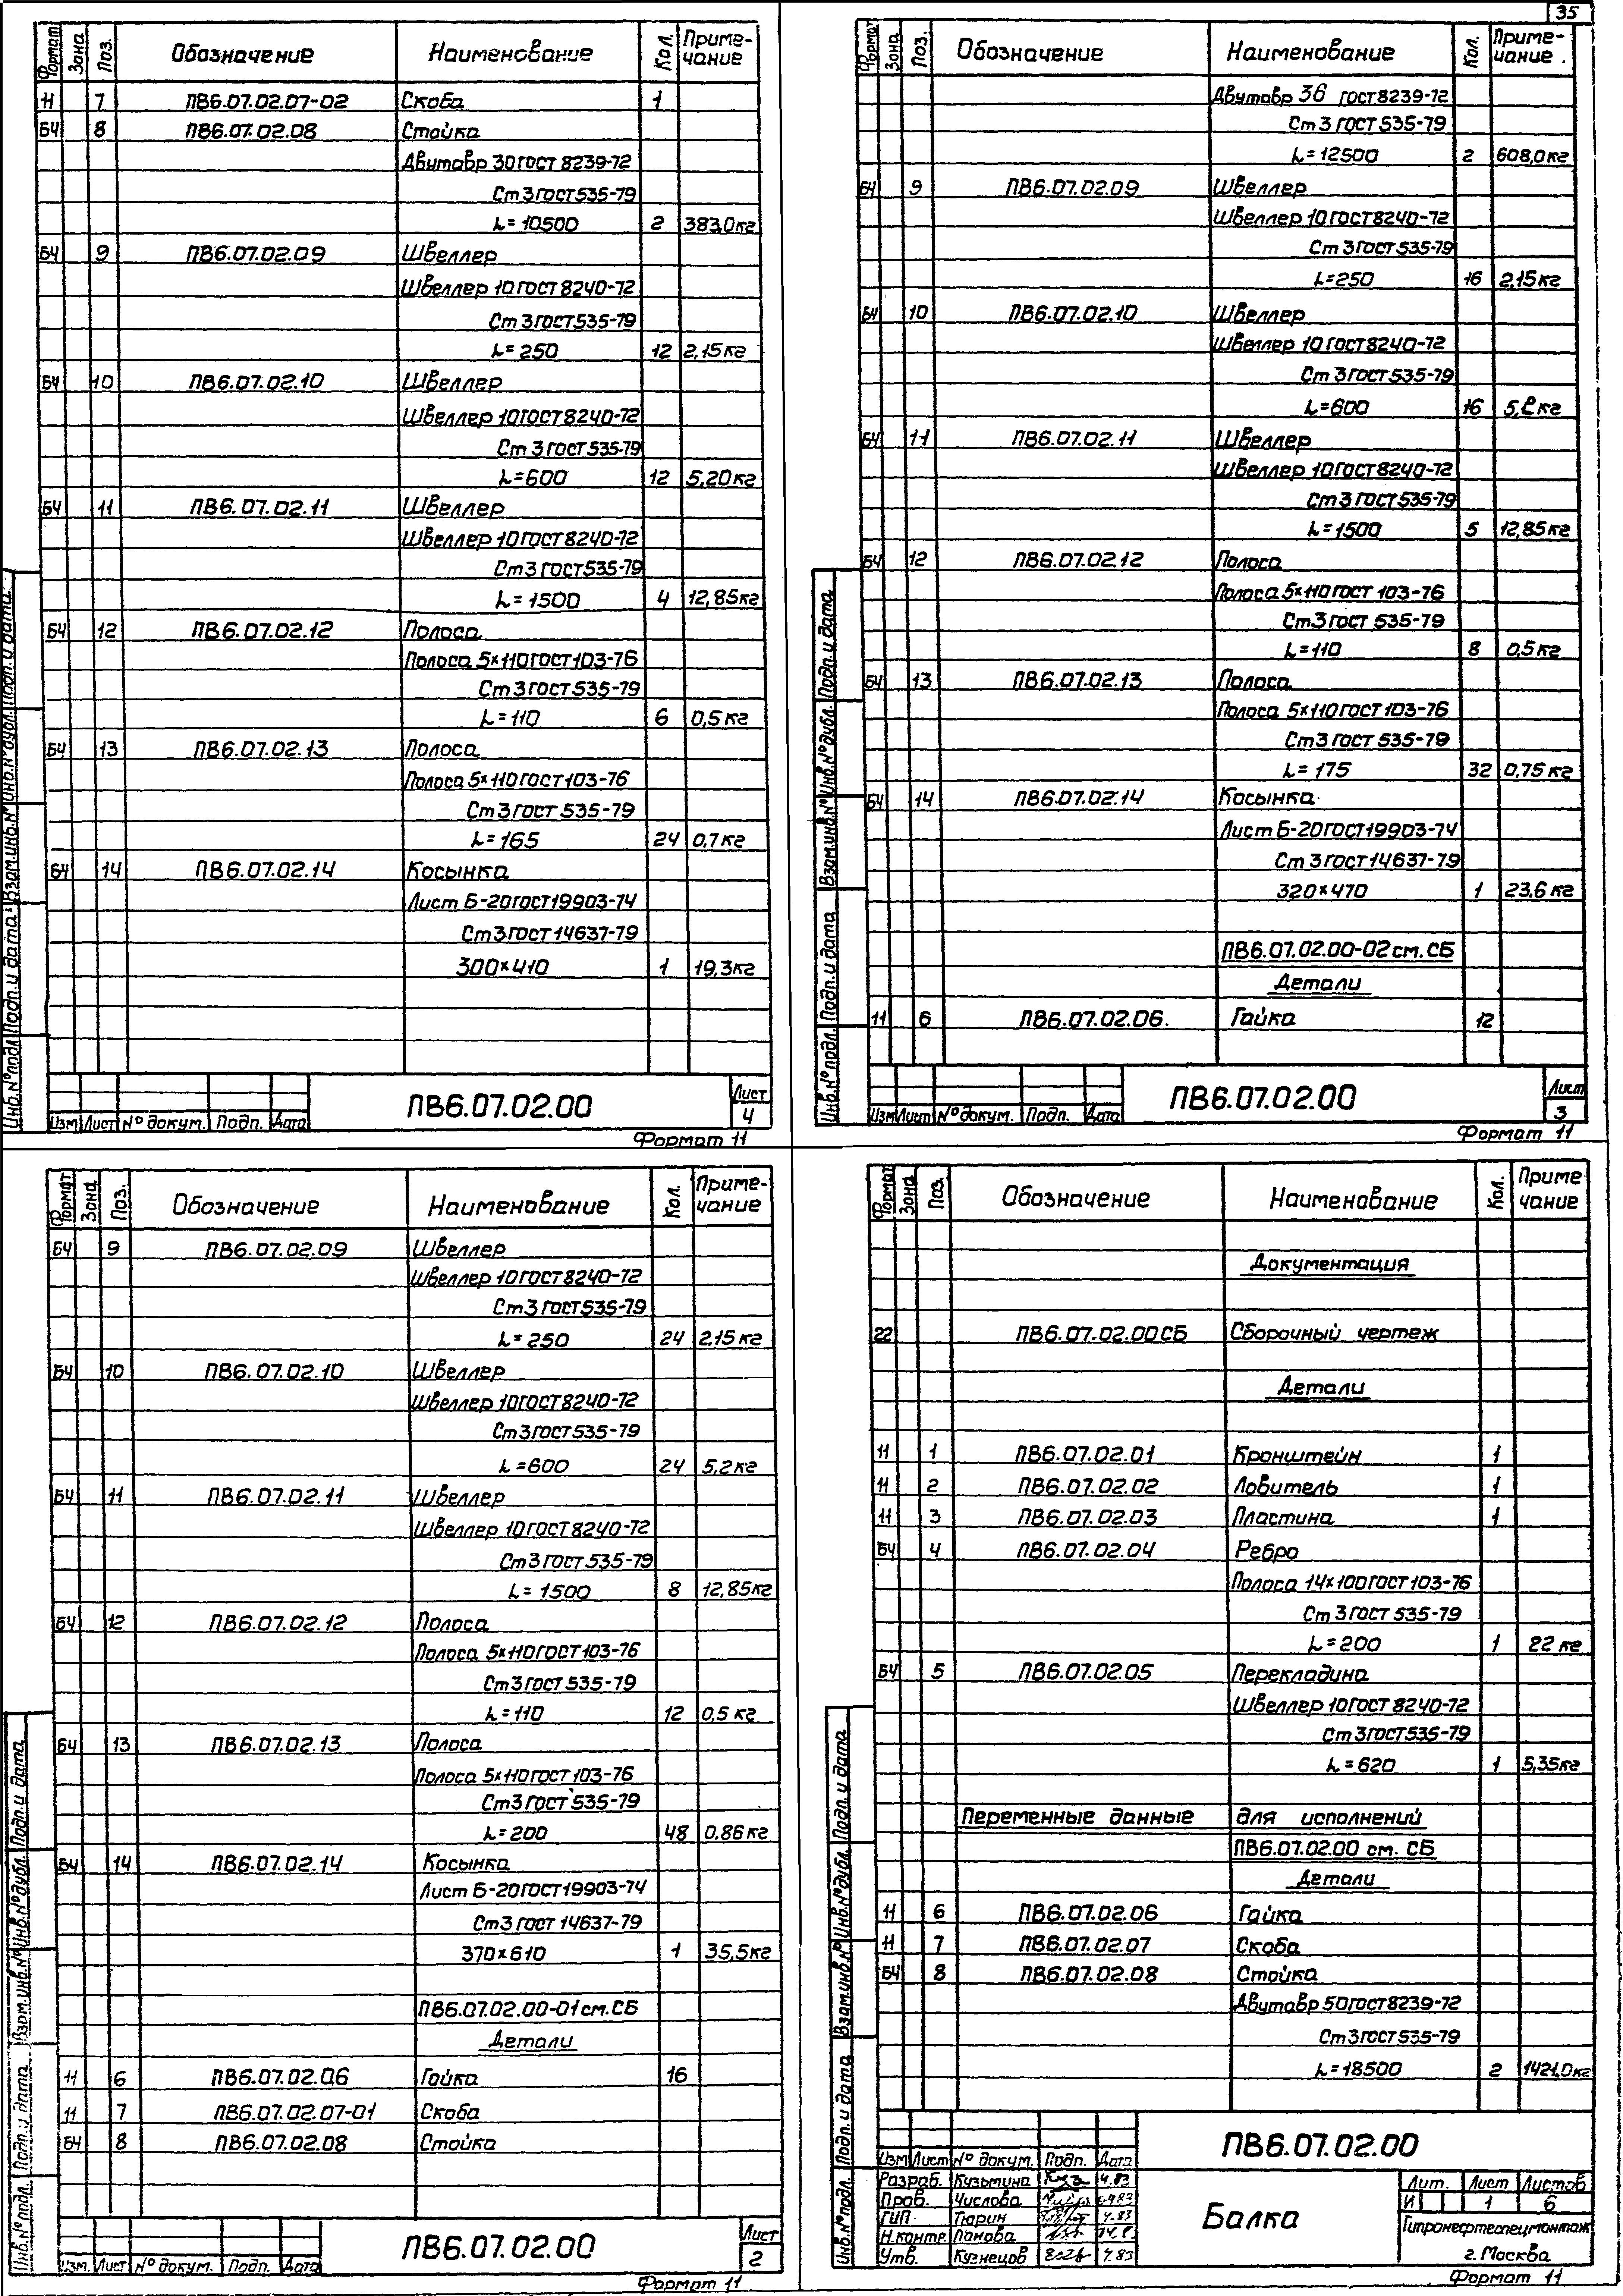 35
Формат Зона Поз. Обозначение Наименование Кол. Приме-
чание
11 7 ПВ6.07.02.07-02 Скоба 1
БЧ 8 ПВ6.07.02.08 Стойка
Двутавр 30 ГОСТ 8239-72
Ст 3 ГОСТ 535-79
L=10500 2 383,0кг
БЧ 9 ПВ6.07.02.09 Швеллер
Швеллер 10 ГОСТ 8240-72
Ст 3 ГОСТ 535-79
L=250 12 2,15кг
БЧ 10 ПВ6.07.02.10 Швеллер
Швеллер 10 ГОСТ 8240-72
Ст 3 ГОСТ 535-79
L=600 12 5,20кг
БЧ 11 ПВ6.07.02.11 Швеллер
Швеллер 10 ГОСТ 8240-72
Ст 3 ГОСТ 535-79
L=1500 4 12,85кг
БЧ 12 ПВ6.07.02.12 Полоса
Полоса 5×110 ГОСТ 103-76
Ст 3 ГОСТ 535-79
L=110 6 0,5кг
БЧ 13 ПВ6.07.02.13 Полоса
Полоса 5×110 ГОСТ 103-76
Ст 3 ГОСТ 535-79
L=165 24 0,7кг
БЧ 14 ПВ6.07.02.14 Косынка
Лист Б-20 ГОСТ 19903-74
Ст 3 ГОСТ 14637-79
300×410 1 19,3кг
Инв.№ подл. Подп. и дата Взам.инв.№ Инв.№ дубл. Подп. и дата
Изм Лист № докум. Подп. Дата
ПВ6.07.02.00
Лист
4
Формат 11
Формат Зона Поз. Обозначение Наименование Кол. Приме-
чание
Двутавр 36 ГОСТ 8239-72
Ст 3 ГОСТ 535-79
L=12500 2 608,0кг
БЧ 9 ПВ6.07.02.09 Швеллер
Швеллер 10 ГОСТ 8240-72
Ст 3 ГОСТ 535-79
L=250 16 2,15кг
БЧ 10 ПВ6.07.02.10 Швеллер
Швеллер 10 ГОСТ 8240-72
Ст 3 ГОСТ 535-79
L=600 16 5,2кг
БЧ 11 ПВ6.07.02.11 Швеллер
Швеллер 10 ГОСТ 8240-72
Ст 3 ГОСТ 535-79
L=1500 5 12,85кг
БЧ 12 ПВ6.07.02.12 Полоса
Полоса 5×110 ГОСТ 103-76
Ст 3 ГОСТ 535-79
L=110 8 0,5кг
БЧ 13 ПВ6.07.02.13 Полоса
Полоса 5×110 ГОСТ 103-76
Ст 3 ГОСТ 535-79
L=175 32 0,75кг
БЧ 14 ПВ6.07.02.14 Косынка
Лист Б-20 ГОСТ 19903-74
Ст 3 ГОСТ 14637-79
320×470 1 23.6 кг
ПВ6.07.02.00-02 см. СБ
Детали
11 6 ПВ6.07.02.06. Гайка 12
Инв.№ подл. Подп. и дата Взам.инв.№ Инв.№ дубл. Подп. и дата
Изм Лист № докум. Подп. Дата
ПВ6.07.02.00
Лист
3
Формат 11
Формат Зона Поз. Обозначение Наименование Кол. Приме-
чание
БЧ 9 ПВ6.07.02.09 Швеллер
Швеллер 10 ГОСТ 8240-72
Ст 3 ГОСТ 535-79
L=250 24 2.15кг
БЧ 10 ПВ6.07.02.10 Швеллер
Швеллер 10 ГОСТ 8240-72
Ст 3 ГОСТ 535-79
L=600 24 5,2кг
БЧ 11 ПВ6.07.02.11 Швеллер
Швеллер 10 ГОСТ 8240-72
Ст 3 ГОСТ 535-79
L=1500 8 12,85кг
БЧ 12 ПВ6.07.02.12 Полоса
Полоса 5×110 ГОСТ 103-76
Ст 3 ГОСТ 535-79
L=110 12 0,5 кг
БЧ 13 ПВ6.07.02.13 Полоса
Полоса 5×110 ГОСТ 103-76
Ст 3 ГОСТ 535-79
L=200 48 0.86 кг
БЧ 14 ПВ6.07.02.14 Косынка
Лист Б-20 ГОСТ 19903-74
Ст 3 ГОСТ 14637-79
370×610 1 35,5кг
ПВ6.07.02.00-01 см. СБ
Детали
11 6 ПВ6.07.02.06 Гайка 16
11 7 ПВ6.07.02.07-01 Скоба
БЧ 8 ПВ6.07.02.08 Стойка
Инв.№ подл. Подп. и дата Взам.инв.№ Инв.№ дубл. Подп. и дата
Изм. Лист № докум. Подп. Дата
ПВ6.07.02.00
Лист
2
Формат 11
Формат Зона Поз. Обозначение Наименование Кол. Приме
чание
Документация
22 ПВ6.07.02.00СБ Сборочный чертеж
Детали
11 1 ПВ6.07.02.01 Кронштейн 1
11 2 ПВ6.07.02.02 Ловитель 1
11 3 ПВ6.07.02.03 Пластина 1
БЧ 4 ПВ6.07.02.04 Ребро
Полоса 14×100 ГОСТ 103-76
Ст 3 ГОСТ 535-79
L=200 1 22 кг
БЧ 5 ПВ6.07.02.05 Перекладина
Швеллер 10 ГОСТ 8240-72
Ст 3 ГОСТ 535-79
L=620 1 5,35кг
Переменные данные для исполнений
ПВ6.07.02.00 см. СБ
Детали
11 6 ПВ6.07.02.06 Гайка
11 7 ПВ6.07.02.07 Скоба
БЧ 8 ПВ6.07.02.08 Стойка
Двутавр 50 ГОСТ 8239-72
Ст 3 ГОСТ 535-79
L=18500 2 1421,0кг
Инв.№ подл. Подп. и дата Взам.инв.№ Инв.№ дубл. Подп. и дата
ПВ6.07.02.00
Изм Лист № докум. Подп. Дата
Разраб. Кузьмина 4.83
Пров. Числова
ГИП Тюрин 4.83
Н.контр. Панова
Утв. Кузнецов 4.83
Балка
Лит. Лист Листов
И 1 6
Гипронефтеспецмонтаж
г. Москва
Формат 11